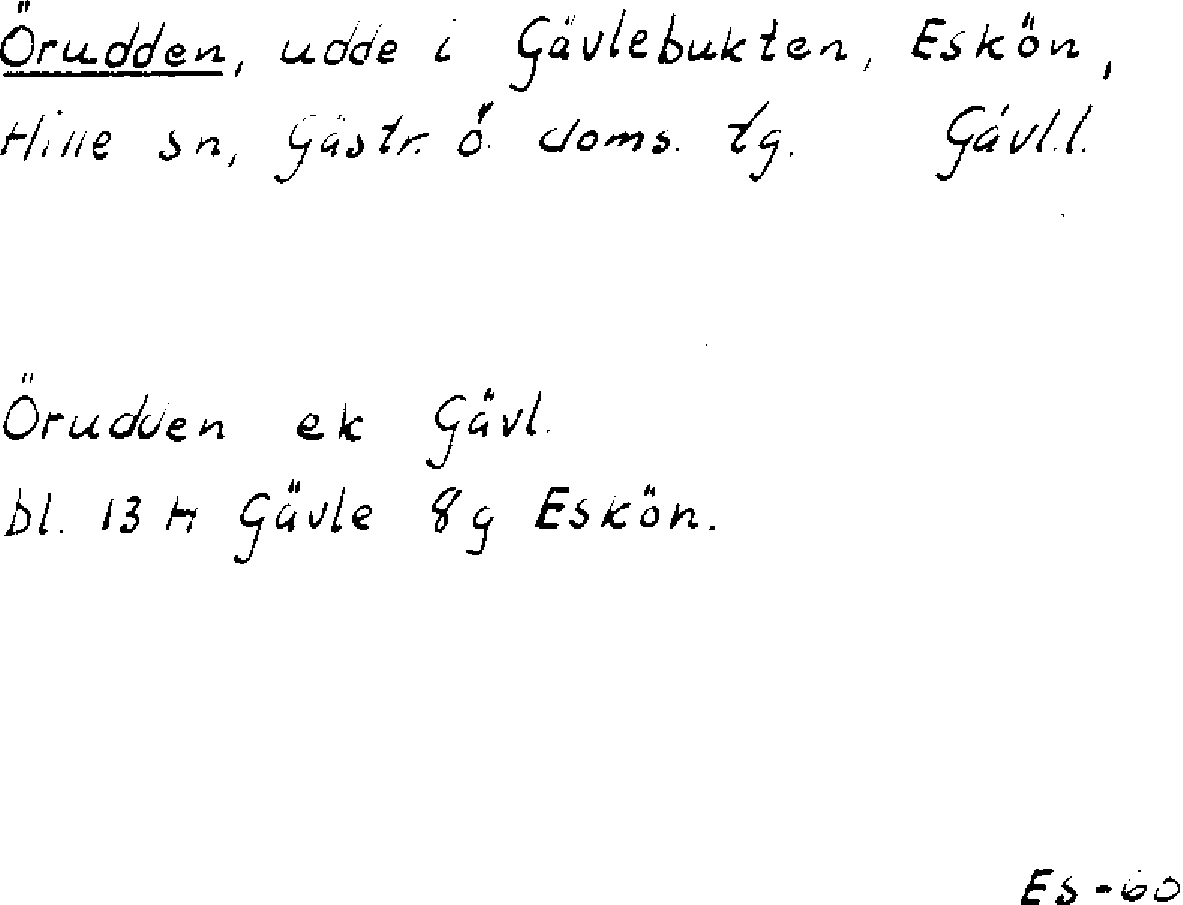 Örudden, udde i Gävlebukten, Eskön,
Hille sn, Gästr. ö. doms. tg. Gävl.l.
Örudden ek Gävl.
bl. 13 H Gävle 8 g Eskön.
ES-60